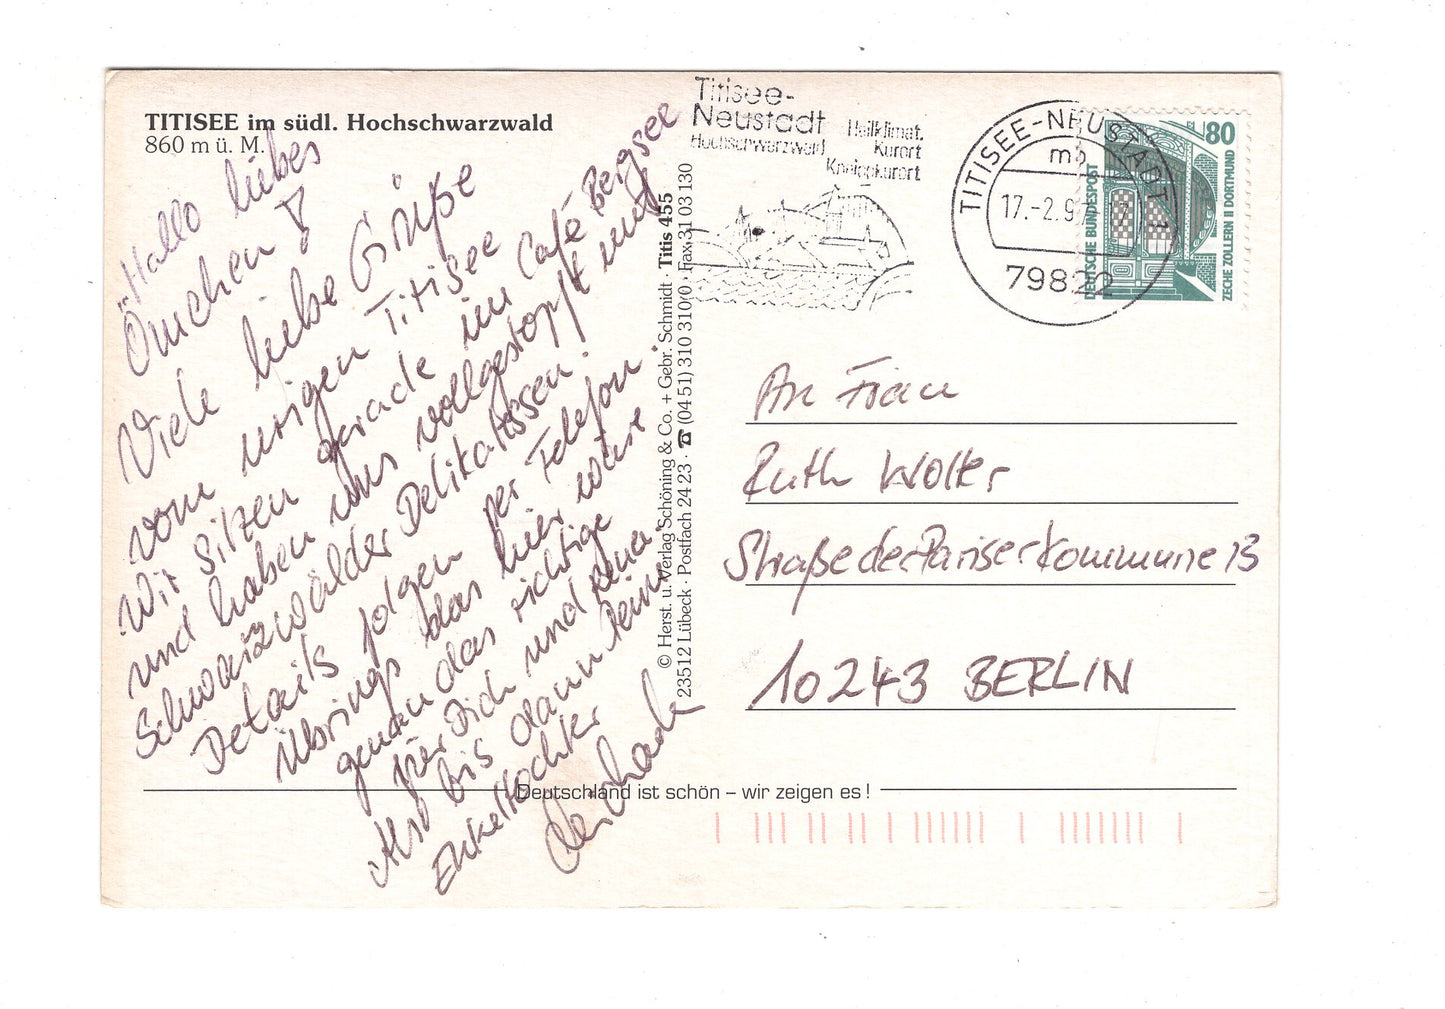 TITISEE im südl. Hochschwarzwald
860 m ü. M.
Hallo liebes
Ömchen!
Viele liebe Grüße
vom urigen Titisee
Wir sitzen gerade im Café Bergsee
und haben uns vollgestopft mit
Schwarzwälder Delikatessen.
Details folgen per Telefon.
Übrings das hier wäre
genau das richtige
für Dich und
Also bis dann Deine
Enkeltochter
© Herst. u. Verlag Schöning & Co. + Gebr. Schmidt · Titis 455
23512 Lübeck · Postfach 24 23 · ☎ (04 51) 310 310/0 · Fax 31 03 130
Titisee-
Neustadt
Hochschwarzwald
Heilklimat.
Kurort
Kneippkurort
TITISEE-NEUSTADT 1
mb
17.-2.9
79822
80
DEUTSCHE BUNDESPOST
ZECHE ZOLLERN II DORTMUND
An Frau
Ruth Wolter
Straße der Pariser Kommune 13
10243 BERLIN
Deutschland ist schön – wir zeigen es!